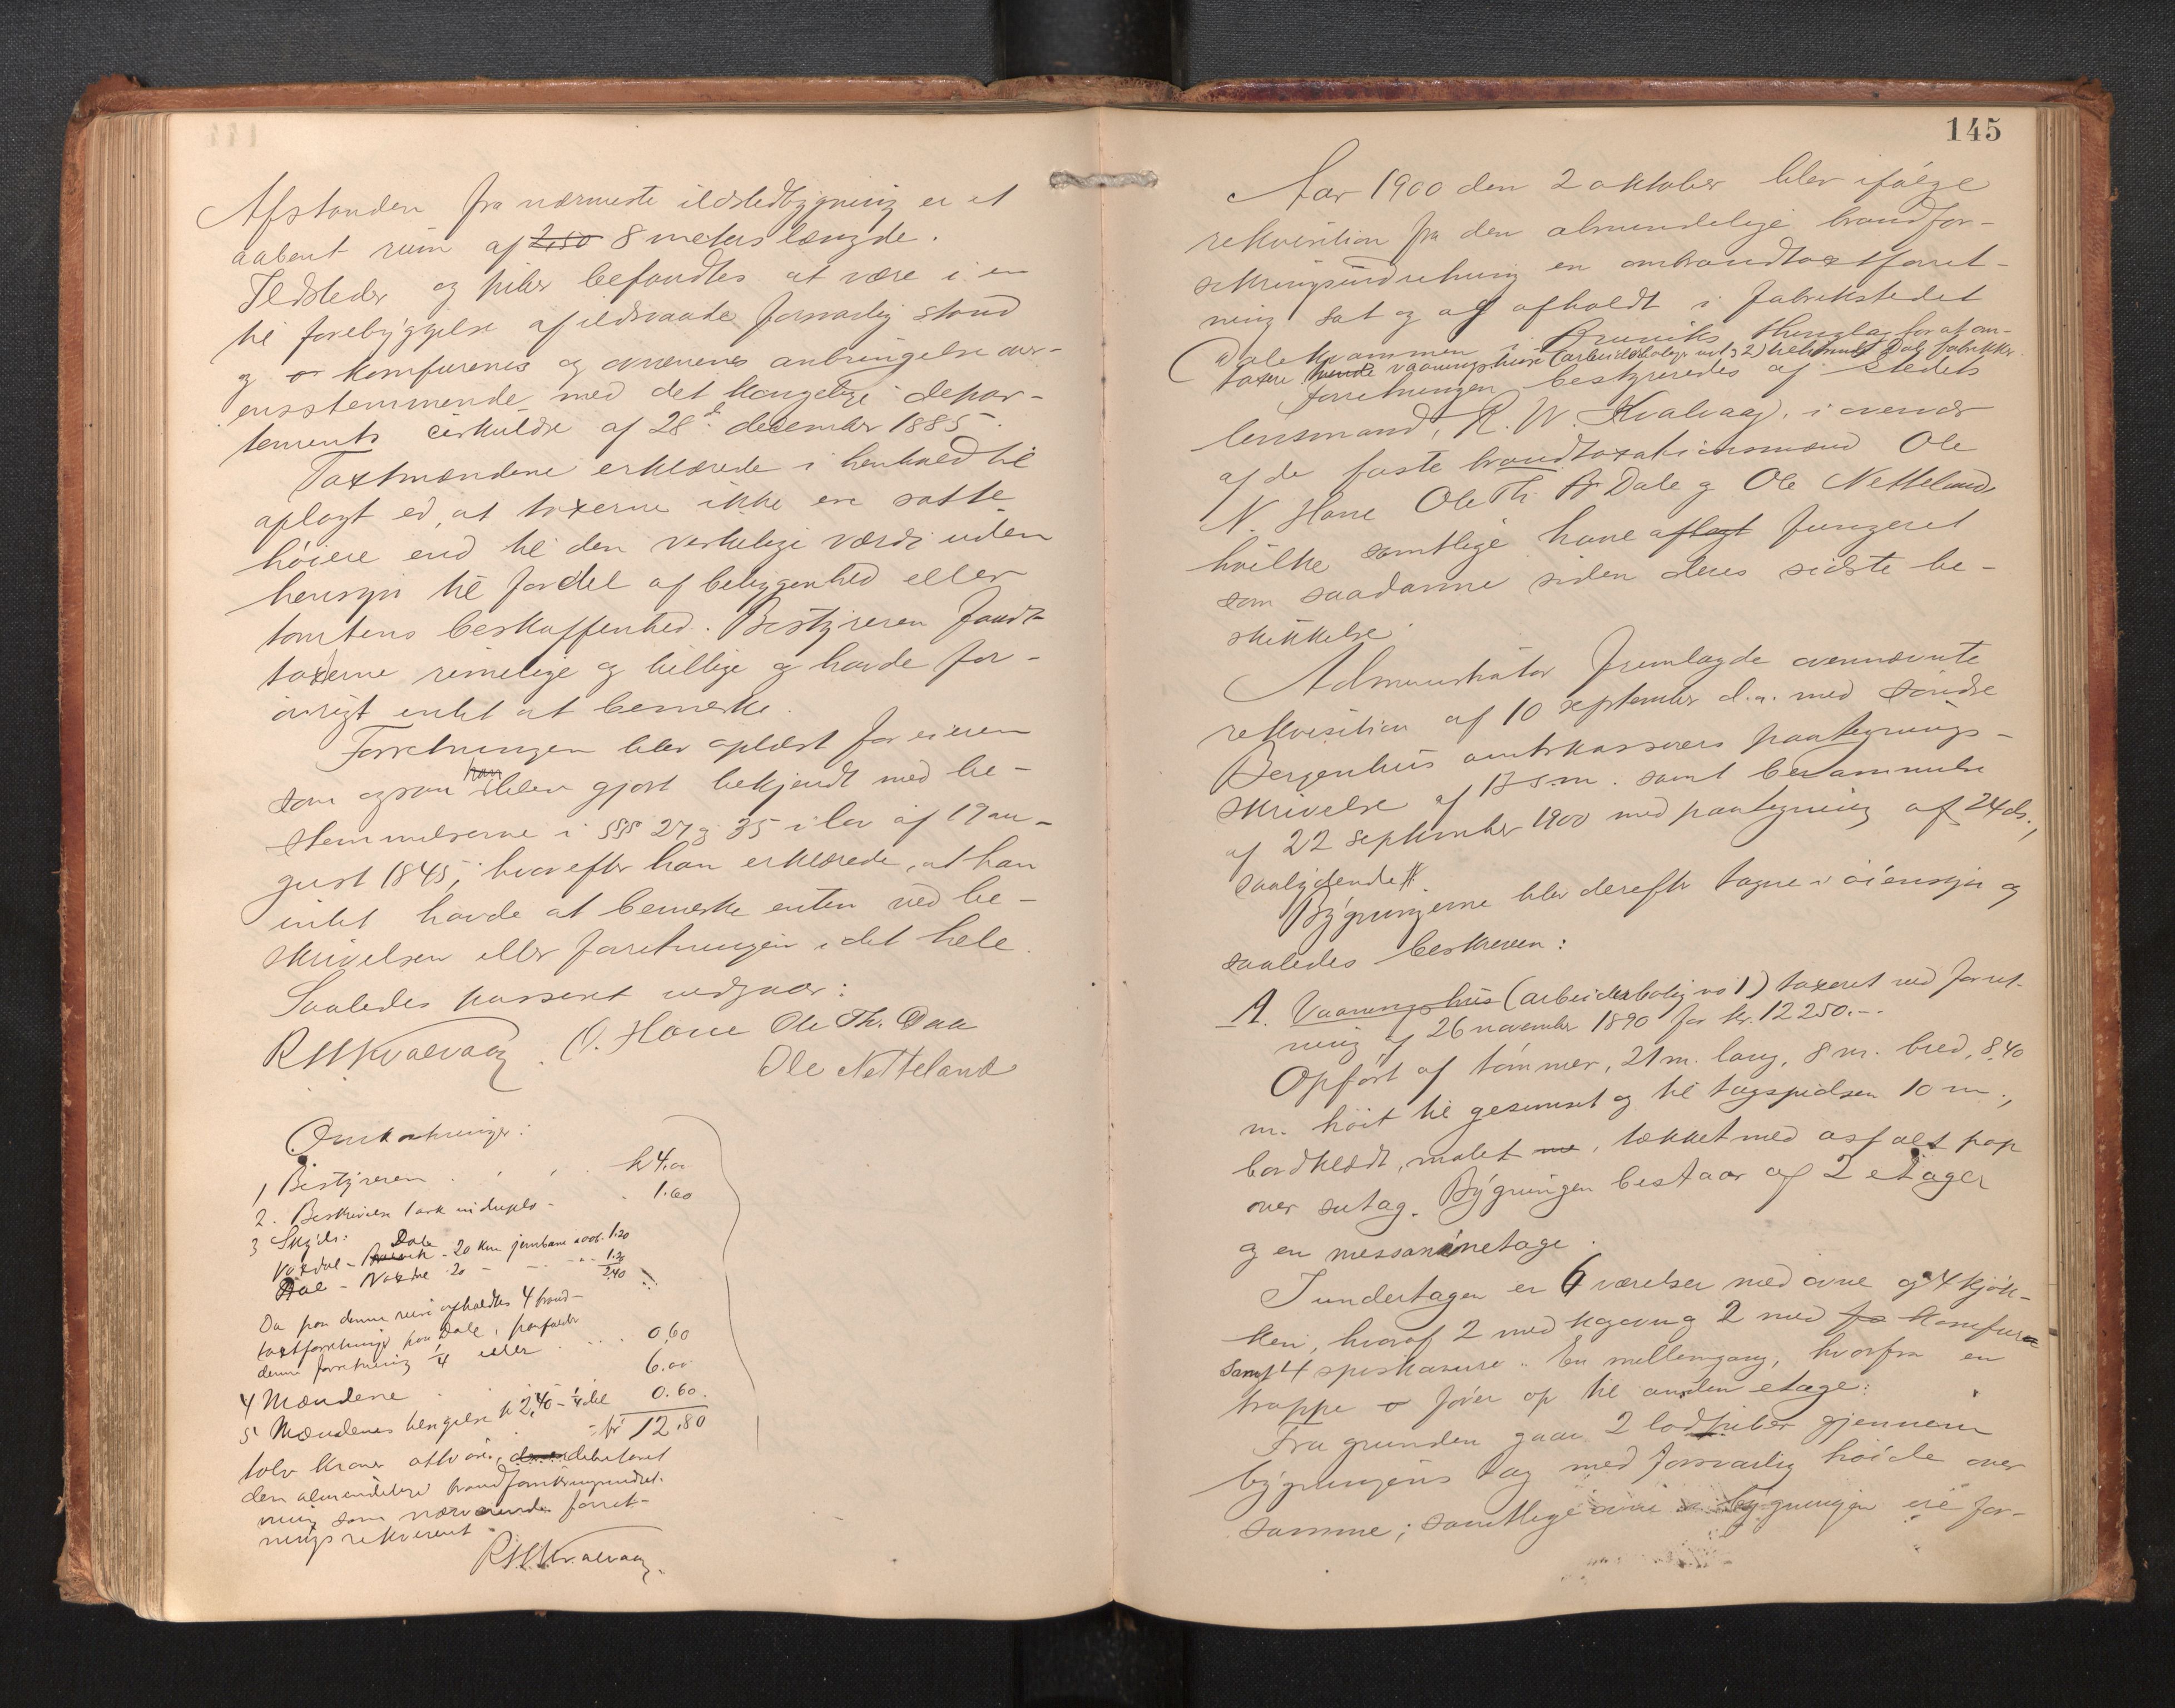 Afstanden fra nærmeste ildstedbygning er et
aabent rum af 2,50 8 meters længde.
Ildsteder og piber befandtes at være i en
til forebyggelse af ildsvaade forsvarlig stand
og komfurenes og ovnenes anbringelse over-
ensstemmende med det kongelige depar-
tements cirkulære af 28de december 1885.
Taxtmændene erklærede i henhold til
aflagt ed, at taxterne ikke ere satte
høiere end til den virkelige værdi uden
hensyn til fordel af beliggenhed eller
tomtens beskaffenhed. Bestyreren fandt
taxterne rimelige og billige og havde for-
øvrigt intet at bemerke.
Forretningen blev oplæst for eieren
som ogsaa blev gjort bekjendt med be-
stemmelserne i §§§ 27 og 35 i lov af 19 au-
gust 1845, hvorefter han erklærede, at han
intet havde at bemerke enten ved be-
skrivelsen eller forretningen i det hele.
Saaledes passeret udgaar:
R W Kvalvaag. O. Hove Ole Th. Daa
Ole Netteland
Omkostninger:
1 Bestyreren . . . kr 4.00
2. Beskrivelse 1 ark in duplo - . 1.60
3 Skyds: Dale
Voxdal - 20 km jernbane 1.20
Dale - Voxdal 20 - - - 1.20
2.40
Da paa denne reise afholdtes 4 brand-
taxtforretninger paa Dale, paafalder
denne forretning 1/4 eller . . . . 0.60
4 Mændene . . 6.00
5 Mændenes kr 2,40 - 1/4 del 0.60.
kr 12.80
tolv kroner otti øre, debiteret
den almindelige brandforsikringsindret-
ning som nærværende forret-
nings rekvirent
R.W.Kvalvaag.
145
Aar 1900 den 2 oktober blev ifølge
rekvisition fra den almindelige brandfor-
sikringsindretning en ombrandtaxtforret-
ning sat og af afholdt i fabrikstedet
Dalekvammen i Bruviks thinglag for at om-
taxere vaaningshuse (arbeiderbolig no 1 og 2) Dale fabrikker
Forretningen bestyreredes af stedets
lensmand, R. W. Kvalvaag, i overvær
af de faste brandtaxationsmænd Ole
N. Hove Ole Th. Dale og Ole Nettelands
hvilke samtlige have aflagt fungeret
som saadanne siden deres sidste be-
skikkelse.
Administrator fremlagde ovennævnte
rekvisition af 10 september d.a. med Søndre
Bergenhus amtskasserers paategnings-
skrivelse af 17 s.m. samt berammelse
af 22 september 1900 med paategning af 24 ds.,
saalydende #.
Bygningerne blev derefter tagne i øiensyn og
saaledes beskreven:
A. Vaaningshus (arbeiderbolig no 1) taxeret ved forret-
ning af 26 november 1890 for kr. 12250.-.
Opført af tømmer, 21 m. lang, 8 m. bred, 8,40
m. høit til gesimset og til tagspidsen 10 m.,
bordklædt, malet, tækket med asfalt pap
over sutag. Bygningen bestaar af 2 etager
og en messaninetage.
I undertagen er 6 værelser med ovne og 4 kjøk-
ken, hvoraf 2 med kogeovn og 2 med komfur
samt 4 spiskamre. En mellemgang, hvorfra en
trappe fører op til anden etage:
Fra grunden gaar 2 lodpiber gjennem
bygningens tag med forsvarlig høide over
samme; samtlige ovne i bygningen ere for-